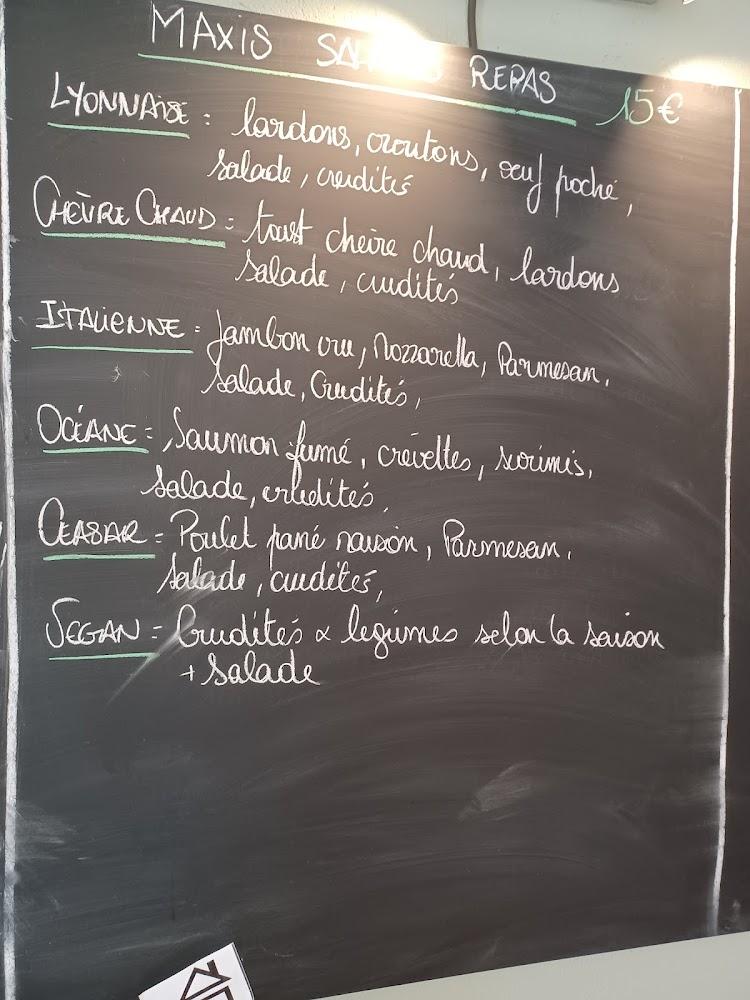 MAXIS REPAS 15€
LYONNAISE : lardons, croutons, oeuf poché,
salade, crudités
CHÈVRE CHAUD : toast chèvre chaud, lardons
salade, crudités
ITALIENNE : Jambon cru, Mozzarella, Parmesan,
Salade, Crudités,
OCÉANE : Saumon fumé, crevettes, surimis,
salade, crudités,
CEASAR : Poulet pané maison, Parmesan,
salade, crudités,
VEGAN : Crudités & légumes selon la saison
+ Salade